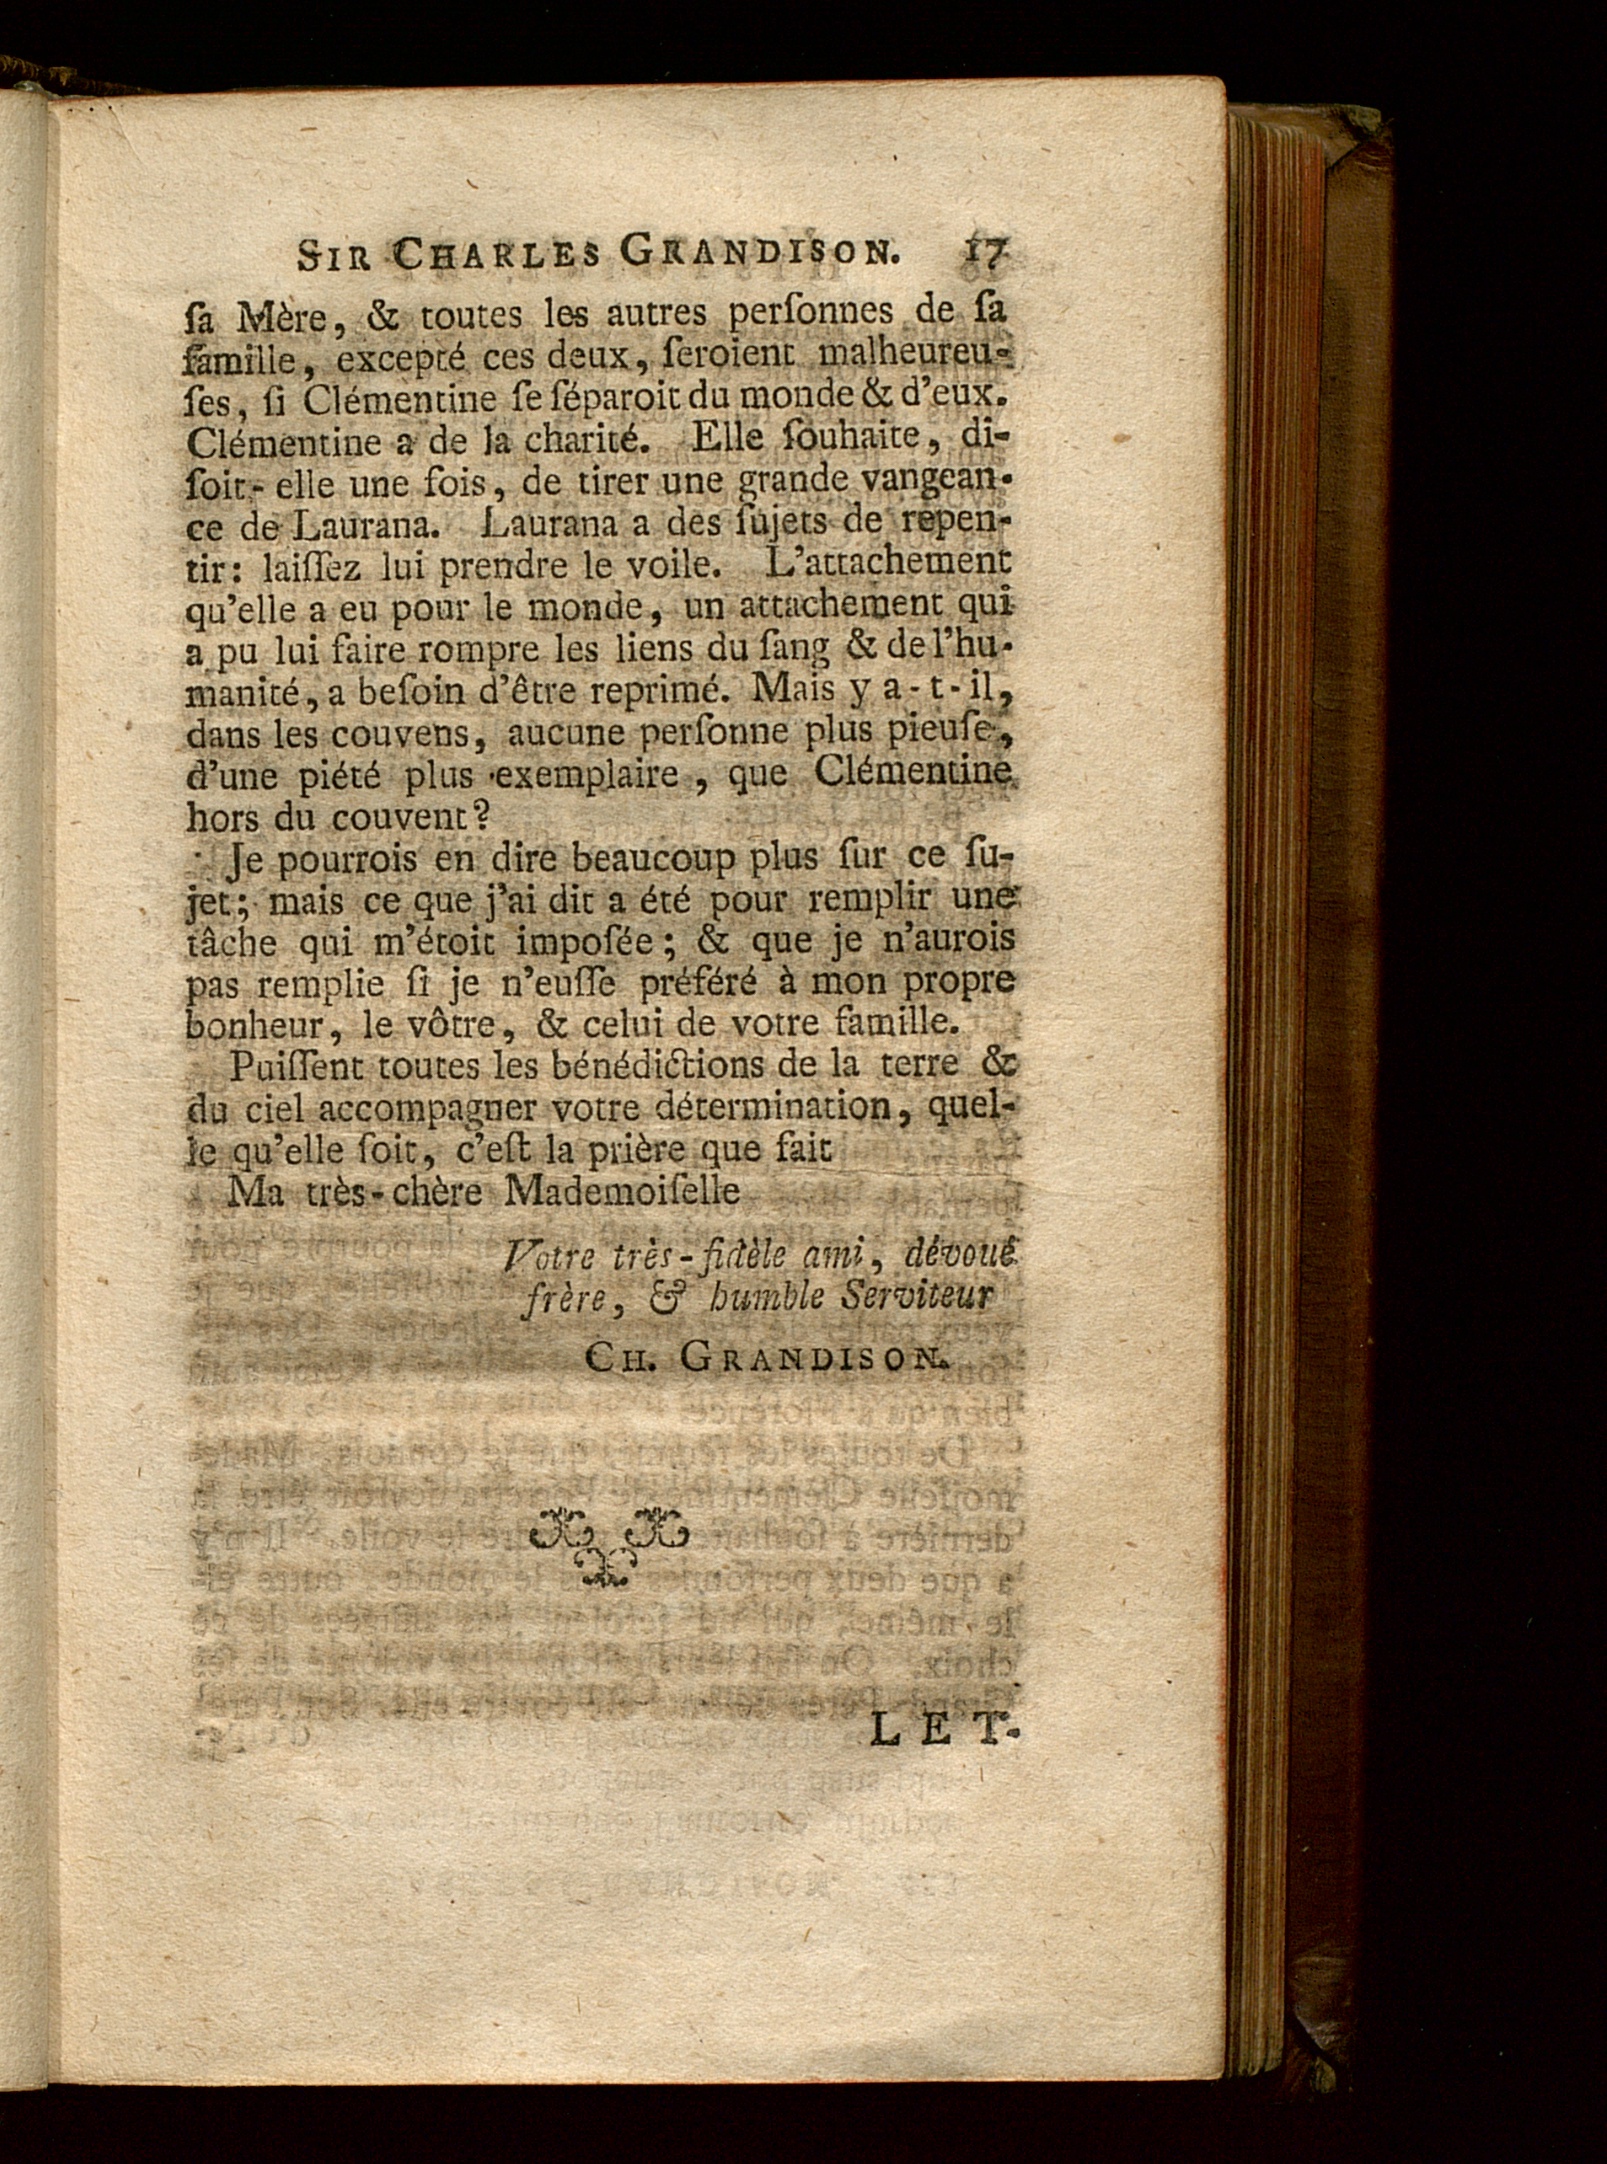 SIR CHARLES GRANDISON. 17
ſa Mère, & toutes les autres perſonnes de ſa
famille, excepté ces deux, ſeroient malheureu-
ſes, ſi Clémentine ſe ſéparoit du monde & d'eux.
Clémentine a de la charité. Elle ſouhaite, di-
ſoit-elle une fois, de tirer une grande vangean-
ce de Laurana. Laurana a des ſujets de repen-
tir: laiſſez lui prendre le voile. L'attachement
qu'elle a eu pour le monde, un attachement qui
a pu lui faire rompre les liens du ſang & de l'hu-
manité, a beſoin d'être reprimé. Mais y a-t-il,
dans les couvens, aucune perſonne plus pieuſe,
d'une piété plus exemplaire, que Clémentine
hors du couvent?
Je pourrois en dire beaucoup plus ſur ce ſu-
jet; mais ce que j'ai dit a été pour remplir une
tâche qui m'étoit impoſée; & que je n'aurois
pas remplie ſi je n'euſſe préféré à mon propre
bonheur, le vôtre, & celui de votre famille.
Puiſſent toutes les bénédictions de la terre &
du ciel accompagner votre détermination, quel-
le qu'elle ſoit, c'eſt la prière que fait
Ma très-chère Mademoiſelle
Votre très-fidèle ami, dévoué
frère, & humble Serviteur
CH. GRANDISON.
LET-